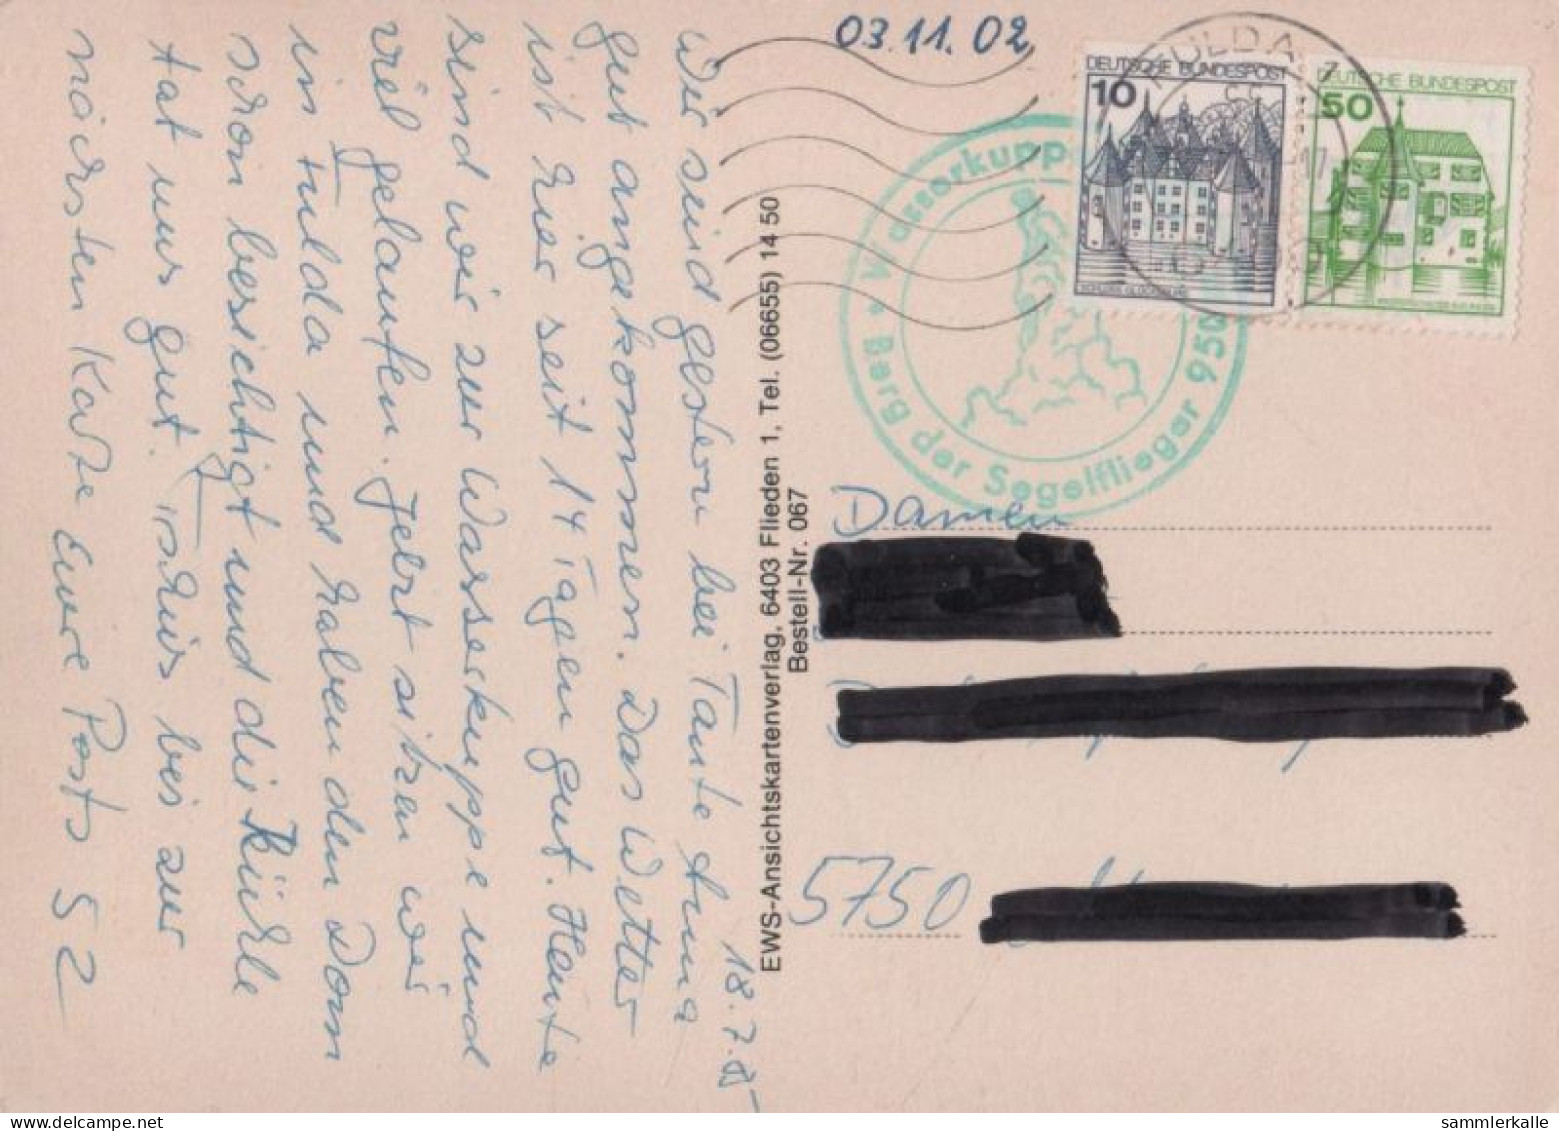 03.11.02
FULDA
DEUTSCHE BUNDESPOST
10
DEUTSCHE BUNDESPOST
50
Wasserkuppe
Berg der Segelflieger 950
18.7.85
Wir sind gestern bei Tante Anna
gut angekommen. Das Wetter
ist hier seit 14 Tagen gut. Heute
sind wir zur Wasserkuppe und
viel gelaufen. Jetzt sitzen wir
in Fulda und haben den Dom
schon besichtigt und die Kühle
tat uns gut. Tschüs bis zur
nächsten Karte Eure Post
EWS-Ansichtskartenverlag, 6403 Flieden 1, Tel. (06655) 14 50
Bestell-Nr. 067
Damen
5750
sammlerkalle